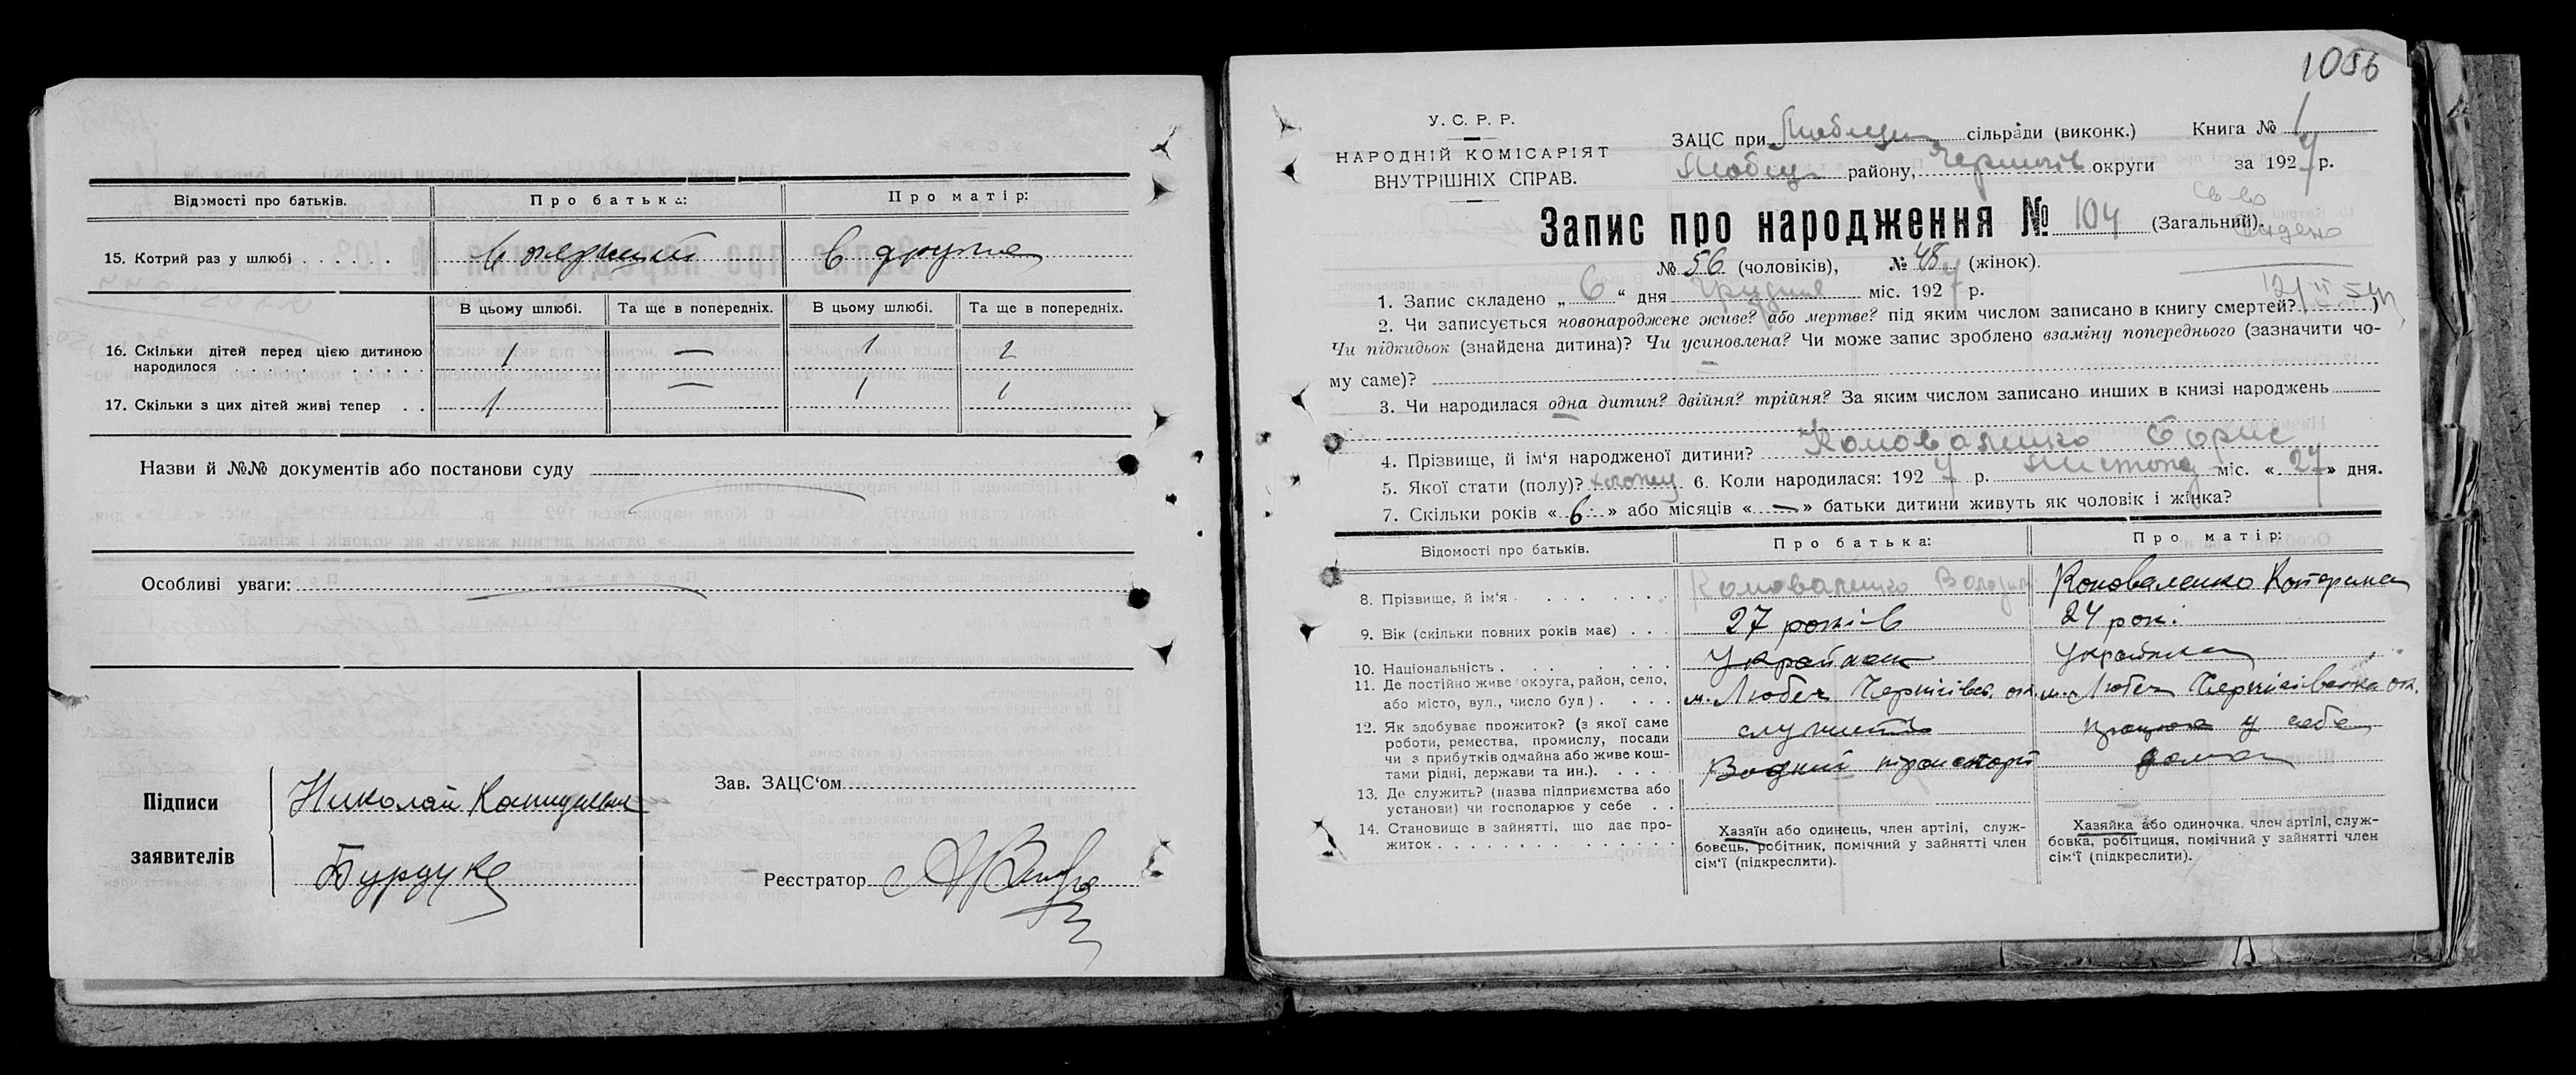 Відомості про батьків.
Про батька:
Про матір:
15. Котрий раз у шлюбі
в перший
в друге
В цьому шлюбі.
Та ще в попередніх.
В цьому шлюбі.
Та ще в попередніх.
16. Скільки дітей перед цією дитиною
народилося
1
—
1
2
17. Скільки з цих дітей живі тепер
1
—
1
1
Назви й №№ документів або постанови суду
Особливі уваги:
Підписи
заявителів
Николай
Бурдуко
Зав. ЗАЦС‘ом
Реєстратор
1056
У. С. Р. Р.
НАРОДНІЙ КОМІСАРІЯТ
ВНУТРІШНІХ СПРАВ.
ЗАЦС при сільради (виконк.) Книга № 1
району, округи за 1927 р.
Запис про народження № 104 (Загальний).
№ 56 (чоловіків), № 48 (жінок).
1. Запис складено „ 6 “ дня Грудня міс. 1927 р.
2. Чи записується новонароджене живе? або мертве? під яким числом записано в книгу смертей? )
Чи підкидьок (знайдена дитина)? Чи усиновлена? Чи може запис зроблено взаміну попереднього (зазначити чо-
му саме)?
3. Чи народилася одна дитин? двійня? трійня? За яким числом записано инших в книзі народжень
4. Прізвище, й ім‘я народженої дитини? Коноваленко Борис
5. Якої стати (полу)? 6. Коли народилася: 1927 р. Листопад міс. « 27 » дня.
7. Скільки років « 6 » або місяців « — » батьки дитини живуть як чоловік і жінка?
Відомості про батьків.
Про батька:
Про матір:
8. Прізвище, й ім‘я
Коноваленко
Коноваленко Катерина
9. Вік (скільки повних років має)
27 років
24 рок.
10. Національність
Українец
Українка
11. Де постійно живе округа, район, село,
або місто, вул., число буд)
м. Любеч Чернігівс. ок.
м. Любеч Чернігівська ок.
12. Як здобуває прожиток? (з якої саме
роботи, ремества, промислу, посади
чи з прибутків одмайна або живе кош-
тами рідні, держави та ин.).
служить
Водний транспорт
працює у себе
дома
13. Де служить? (назва підприємства або
установи) чи господарює у себе
14. Становище в зайнятті, що дає про-
житок
Хазяїн або одинець, член артілі, служ-
бовець, робітник, помічний у зайнятті член
сім‘ї (підкреслити).
Хазяйка або одиночка. член артілі, служ-
бовка, робітциця, помічний у зайнятті член
сім‘ї (підкреслити).